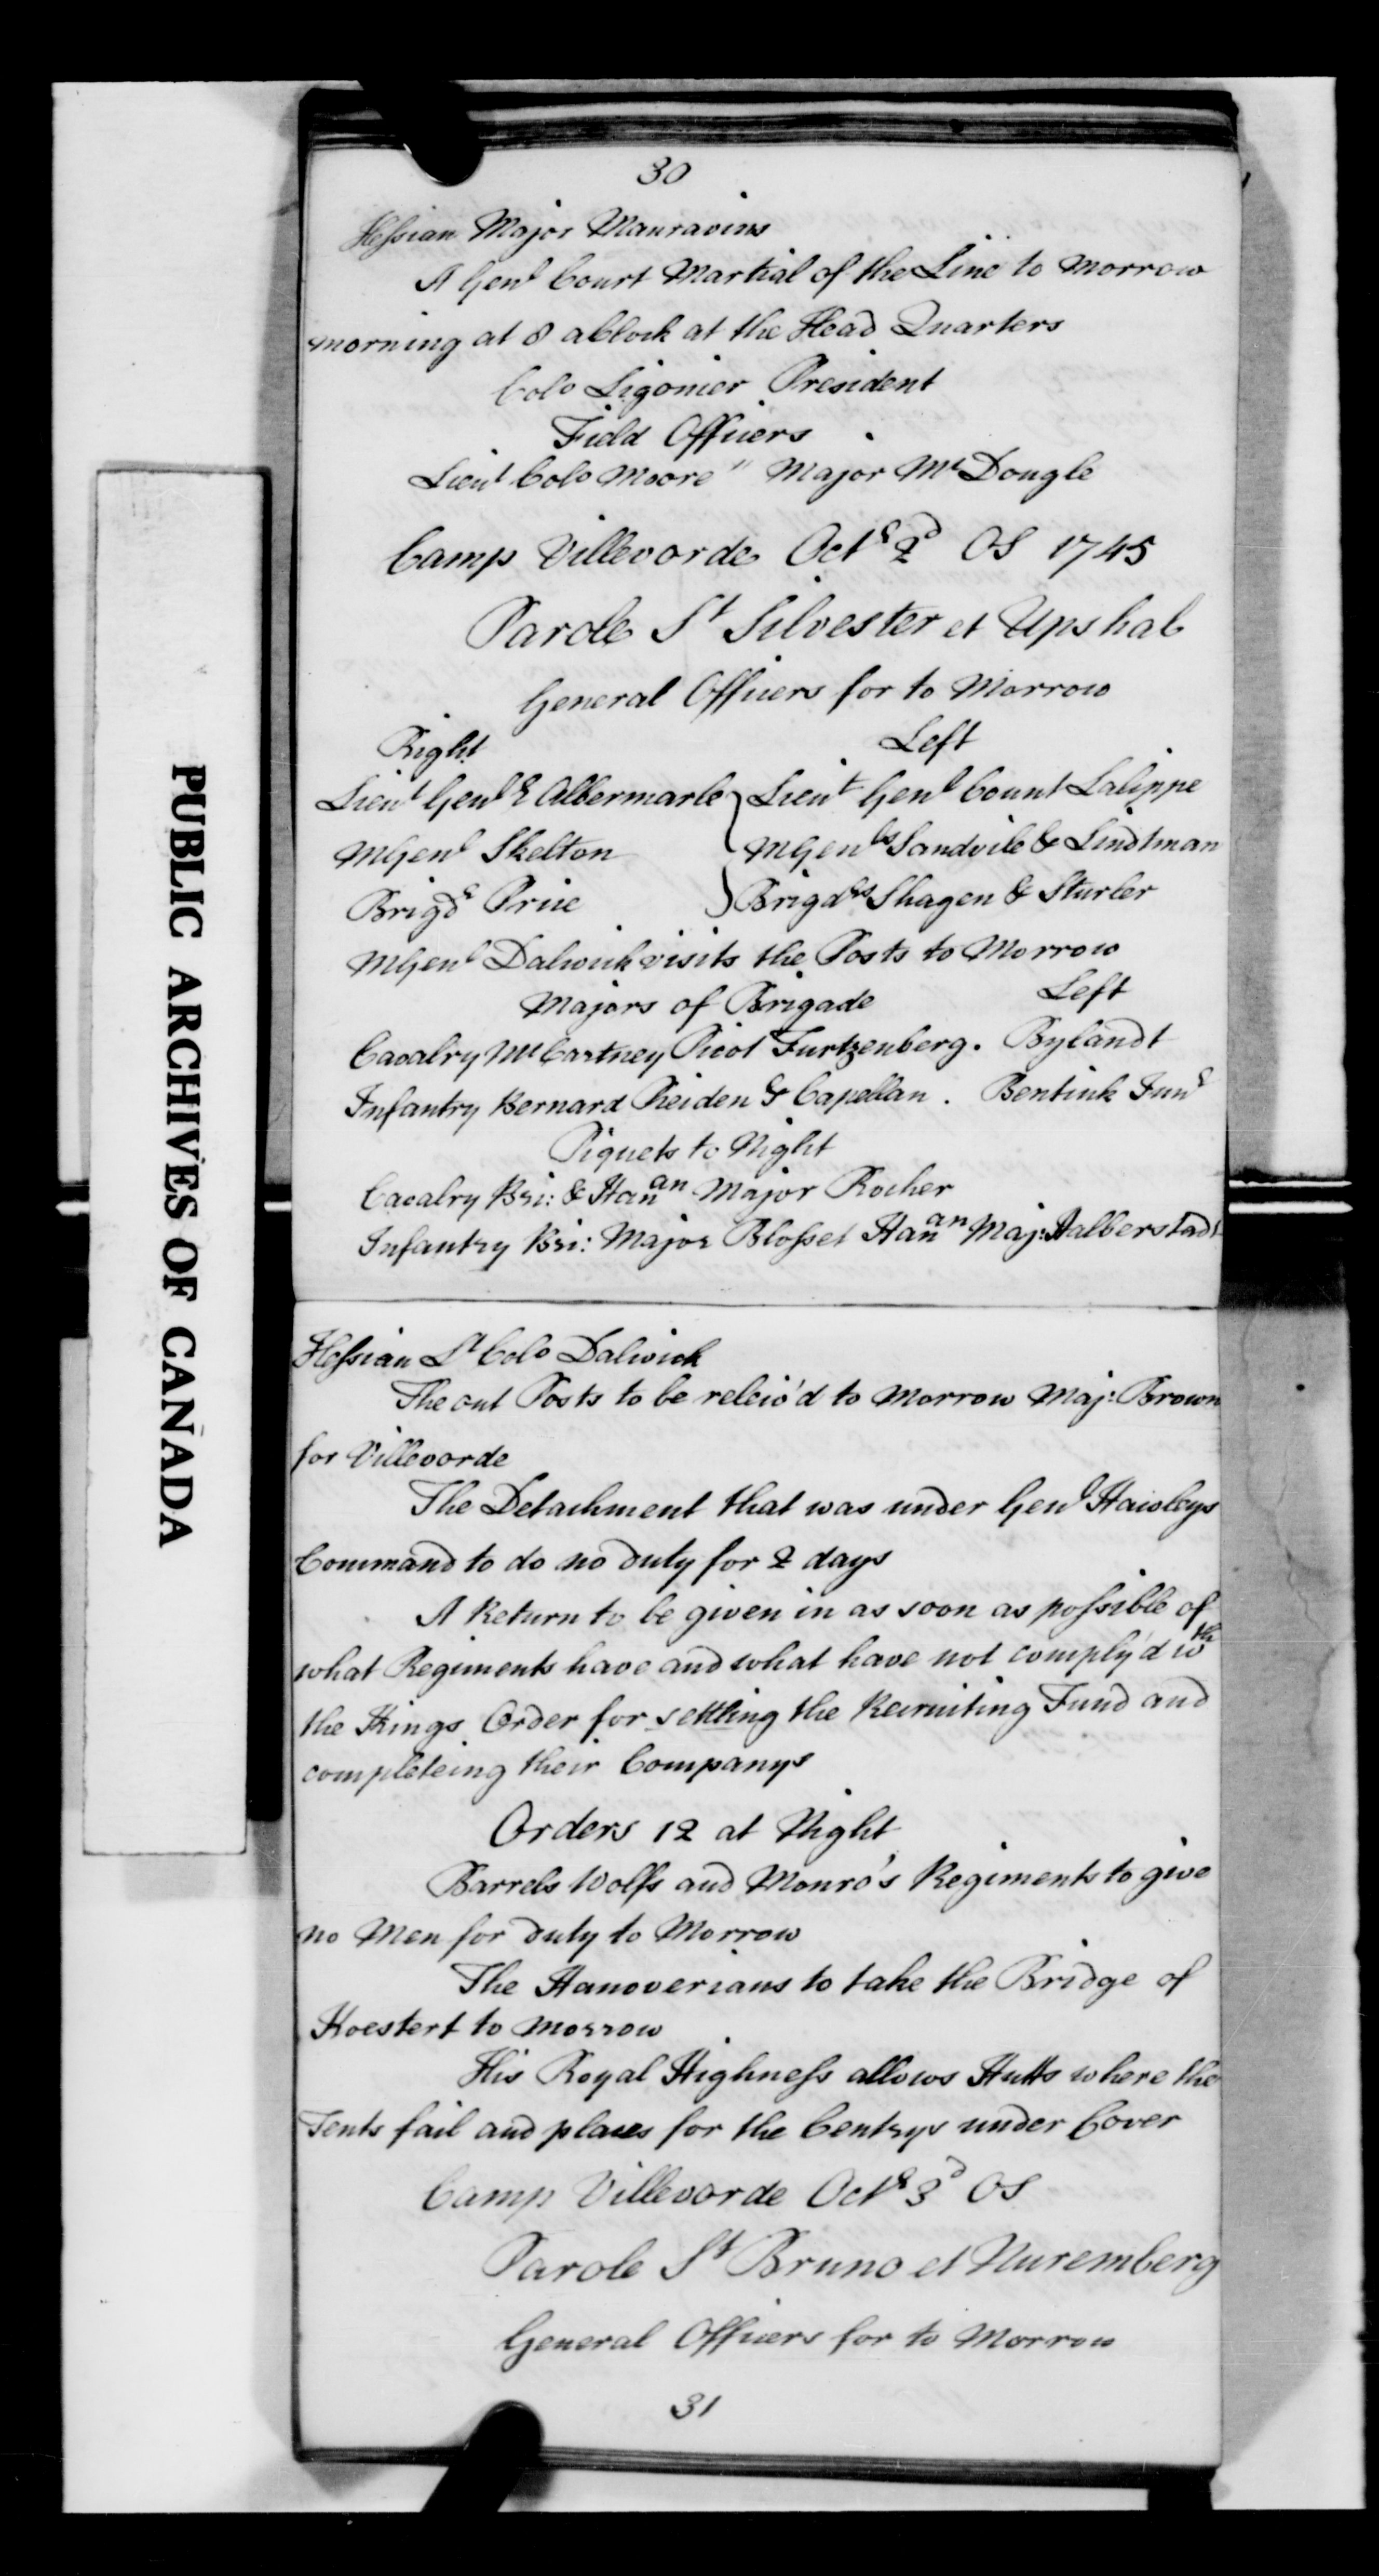 30
Hessian Major Mauravius
A Genl Court Martial of the Line to Morrow
morning at 8 aClock at the Head Quarters
Colo Ligonier President
Field Officers
Lieut Colo Moore " Major McDougle
Camp Villevorde Octr 2d OS 1745
Parole St Silvester et Upshal
General Officers for to Morrow
Right Left
Lieut Genl E Albermarle Lieut Genl Count Lalippe
MGenl Skelton MGenls Sandvile & Lindtman
Brigdr Price Brigdrs Shagen & Sturler
MGenl Dalwick visits the Posts to Morrow
Majors of Brigade Left
Cavalry McCartney Picot Furtzenberg. Bylandt
Infantry Bernard Reiden & Capellan. Bentink Junr
Piquets to Night
Cavalry Bri: & Hanan Major Rocher
Infantry Bri: Major Blosset Hanan Maj: Halberstadt
Hessian Lt Colo Dalwick
The out Posts to be releiv'd to Morrow Maj: Brown
for Villevorde
The Detachment that was under Genl Hawleys
Command to do no duty for 2 days
A Return to be given in as soon as possible of
what Regiments have and what have not comply'd wth
the Kings Order for settling the Recruiting Fund and
completeing their Companys
Orders 12 at Night
Barrels Wolfs and Monro's Regiments to give
no Men for duty to Morrow
The Hanoverians to take the Bridge of
Hoestert to Morrow
His Royal Highness allows Hutts where the
Tents fail and places for the Centrys under Cover
Camp Villevorde Octr 3d OS
Parole St Bruno et Nuremberg
General Officers for to Morrow
31
PUBLIC ARCHIVES OF CANADA